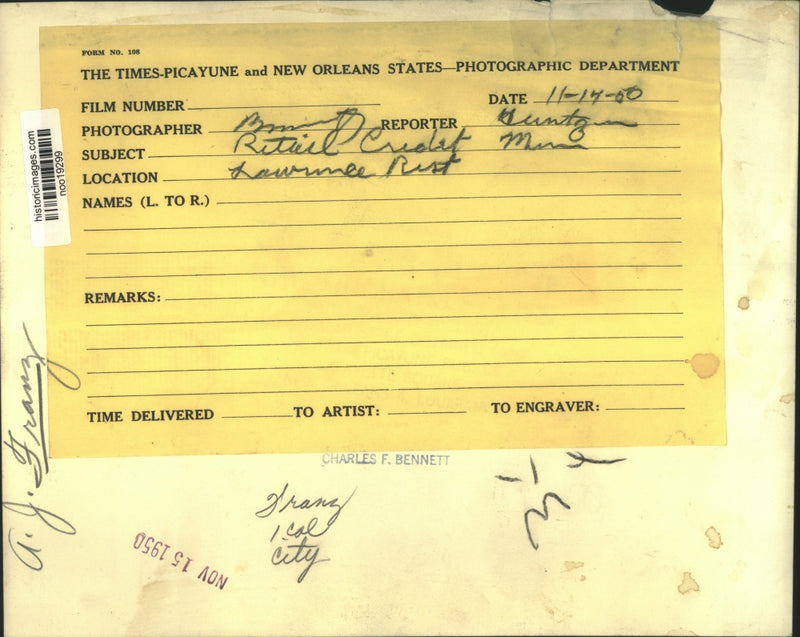 FORM NO. 108
THE TIMES-PICAYUNE and NEW ORLEANS STATES—PHOTOGRAPHIC DEPARTMENT
FILM NUMBER
DATE 11-14-50
PHOTOGRAPHER Bennett REPORTER
SUBJECT Retail Credit
LOCATION Lawrence Rest
NAMES (L. TO R.)
REMARKS:
TIME DELIVERED TO ARTIST: TO ENGRAVER:
historicimages.com
noo19299
A. J. Franz
CHARLES F. BENNETT
Franz
1 col
City
NOV 15 1950